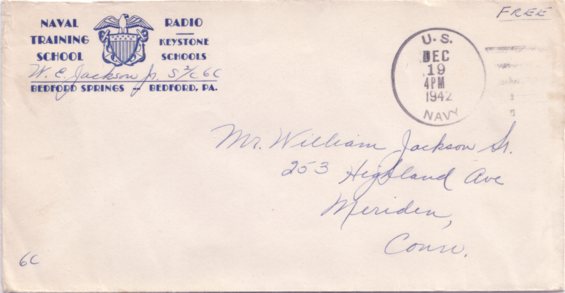 FREE
NAVAL RADIO
TRAINING KEYSTONE
SCHOOL SCHOOLS
W. E. Jackson Jr. S 2/c 6C
BEDFORD SPRINGS — BEDFORD, PA.
U.S.
DEC
19
4 PM
1942
NAVY
Mr. William Jackson Sr.
253 Highland Ave
Meriden,
Conn.
6C